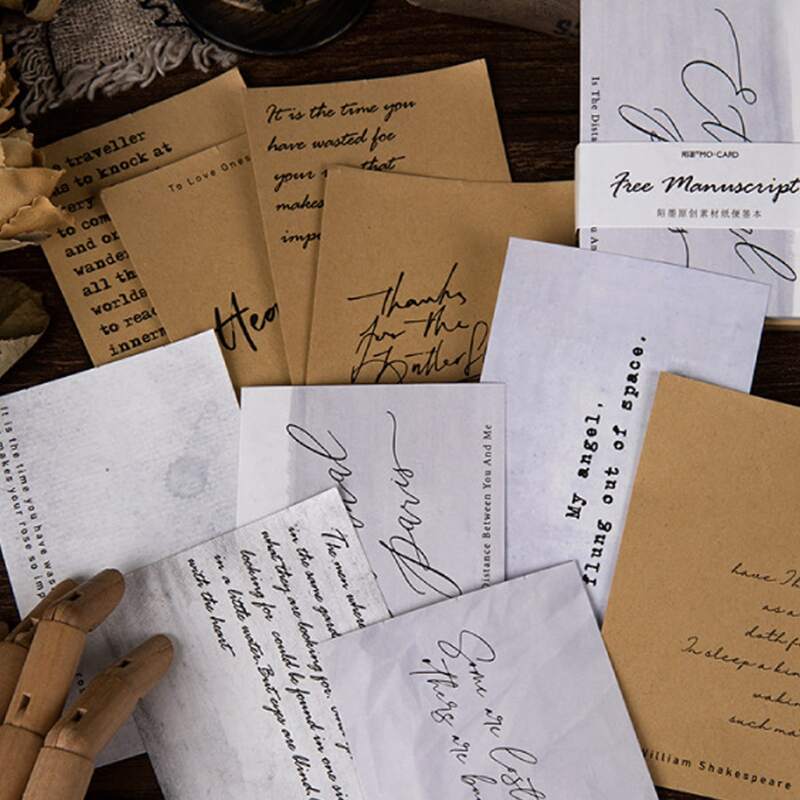 e traveller
s to knock at
very
to com
and or
wande
all th
worlds
to reac
innerm
To Love Ones
Hea
It is the time you
have wasted foe
your that
makes
impo
Thanks
for the
Butterf
Is The Dista
陌墨®MO·CARD
Free Manuscript
陌墨原创素材纸便签本
u An
It is the time you have was
makes your rose so imp
Paris
Distance Between You And Me
My angel,
flung out of space.
The men where
in the same gard
what they are looking for.
looking for could be found in one si
in a little water. But eyes are blind l
with the heart
Some are lost
others are bu
have Th
as a
doth f
In sleep a kin
wakin
such ma
William Shakespeare